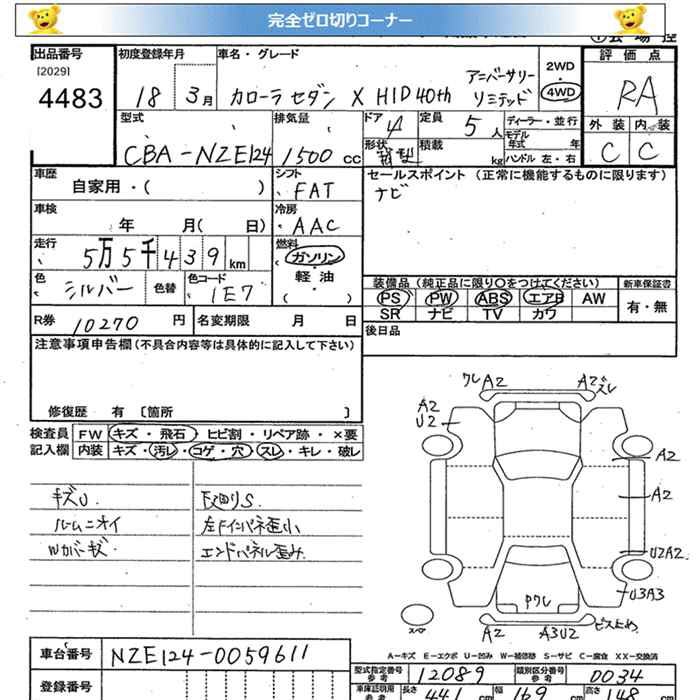 完全ゼロ切りコーナー
出品番号 初度登録年月 車名・グレード 評価点
[2029]
4483 18 3月 カローラセダン X HID 40th アニバーサリー リミテッド 2WD 4WD RA
型式 排気量 ドア 定員 ディーラー・並行 外装 内装
CBA-NZE124 1500cc 4 5人 モデル年式 年 C C
形状 積載 kg ハンドル 左・右
車歴 シフト セールスポイント (正常に機能するものに限ります)
自家用・( ) FAT ナビ
車検 冷房
年 月( 日) AAC
走行 燃料
5万5千439km ガソリン
軽・油
( )
色 シルバー 色替 色コード 1E7
装備品(純正品に限り○をつけてください) 新車保証書
PS PW ABS エアB AW 有・無
SR ナビ TV カワ
R券 10270円 名変期限 月 日 後日品
注意事項申告欄(不具合内容等は具体的に記入して下さい)
修復歴 有 〔箇所 〕
検査員 FW キズ・飛石・ヒビ割・リペア跡・×要
記入欄 内装 キズ・汚レ・コゲ・穴・スレ・キレ・破レ
キズU. 下廻りS.
ルームニオイ 左Fインパネ歪小
Wカバーキズ. エンドパネル歪み.
ワレ A2 A2 スレ
A2
U2
A2
A2
U2A2
U3A3
Pワレ
スペア A2 A3U2 ビス止め
A-キズ E-エクボ U-凹み W-補修跡 S-サビ C-腐食 XX-交換済
車台番号 NZE124-0059611
型式指定番号 参考 12089 類別区分番号 参考 0034
登録番号 車庫証明用 参考 長さ 441 幅 169 高さ 148